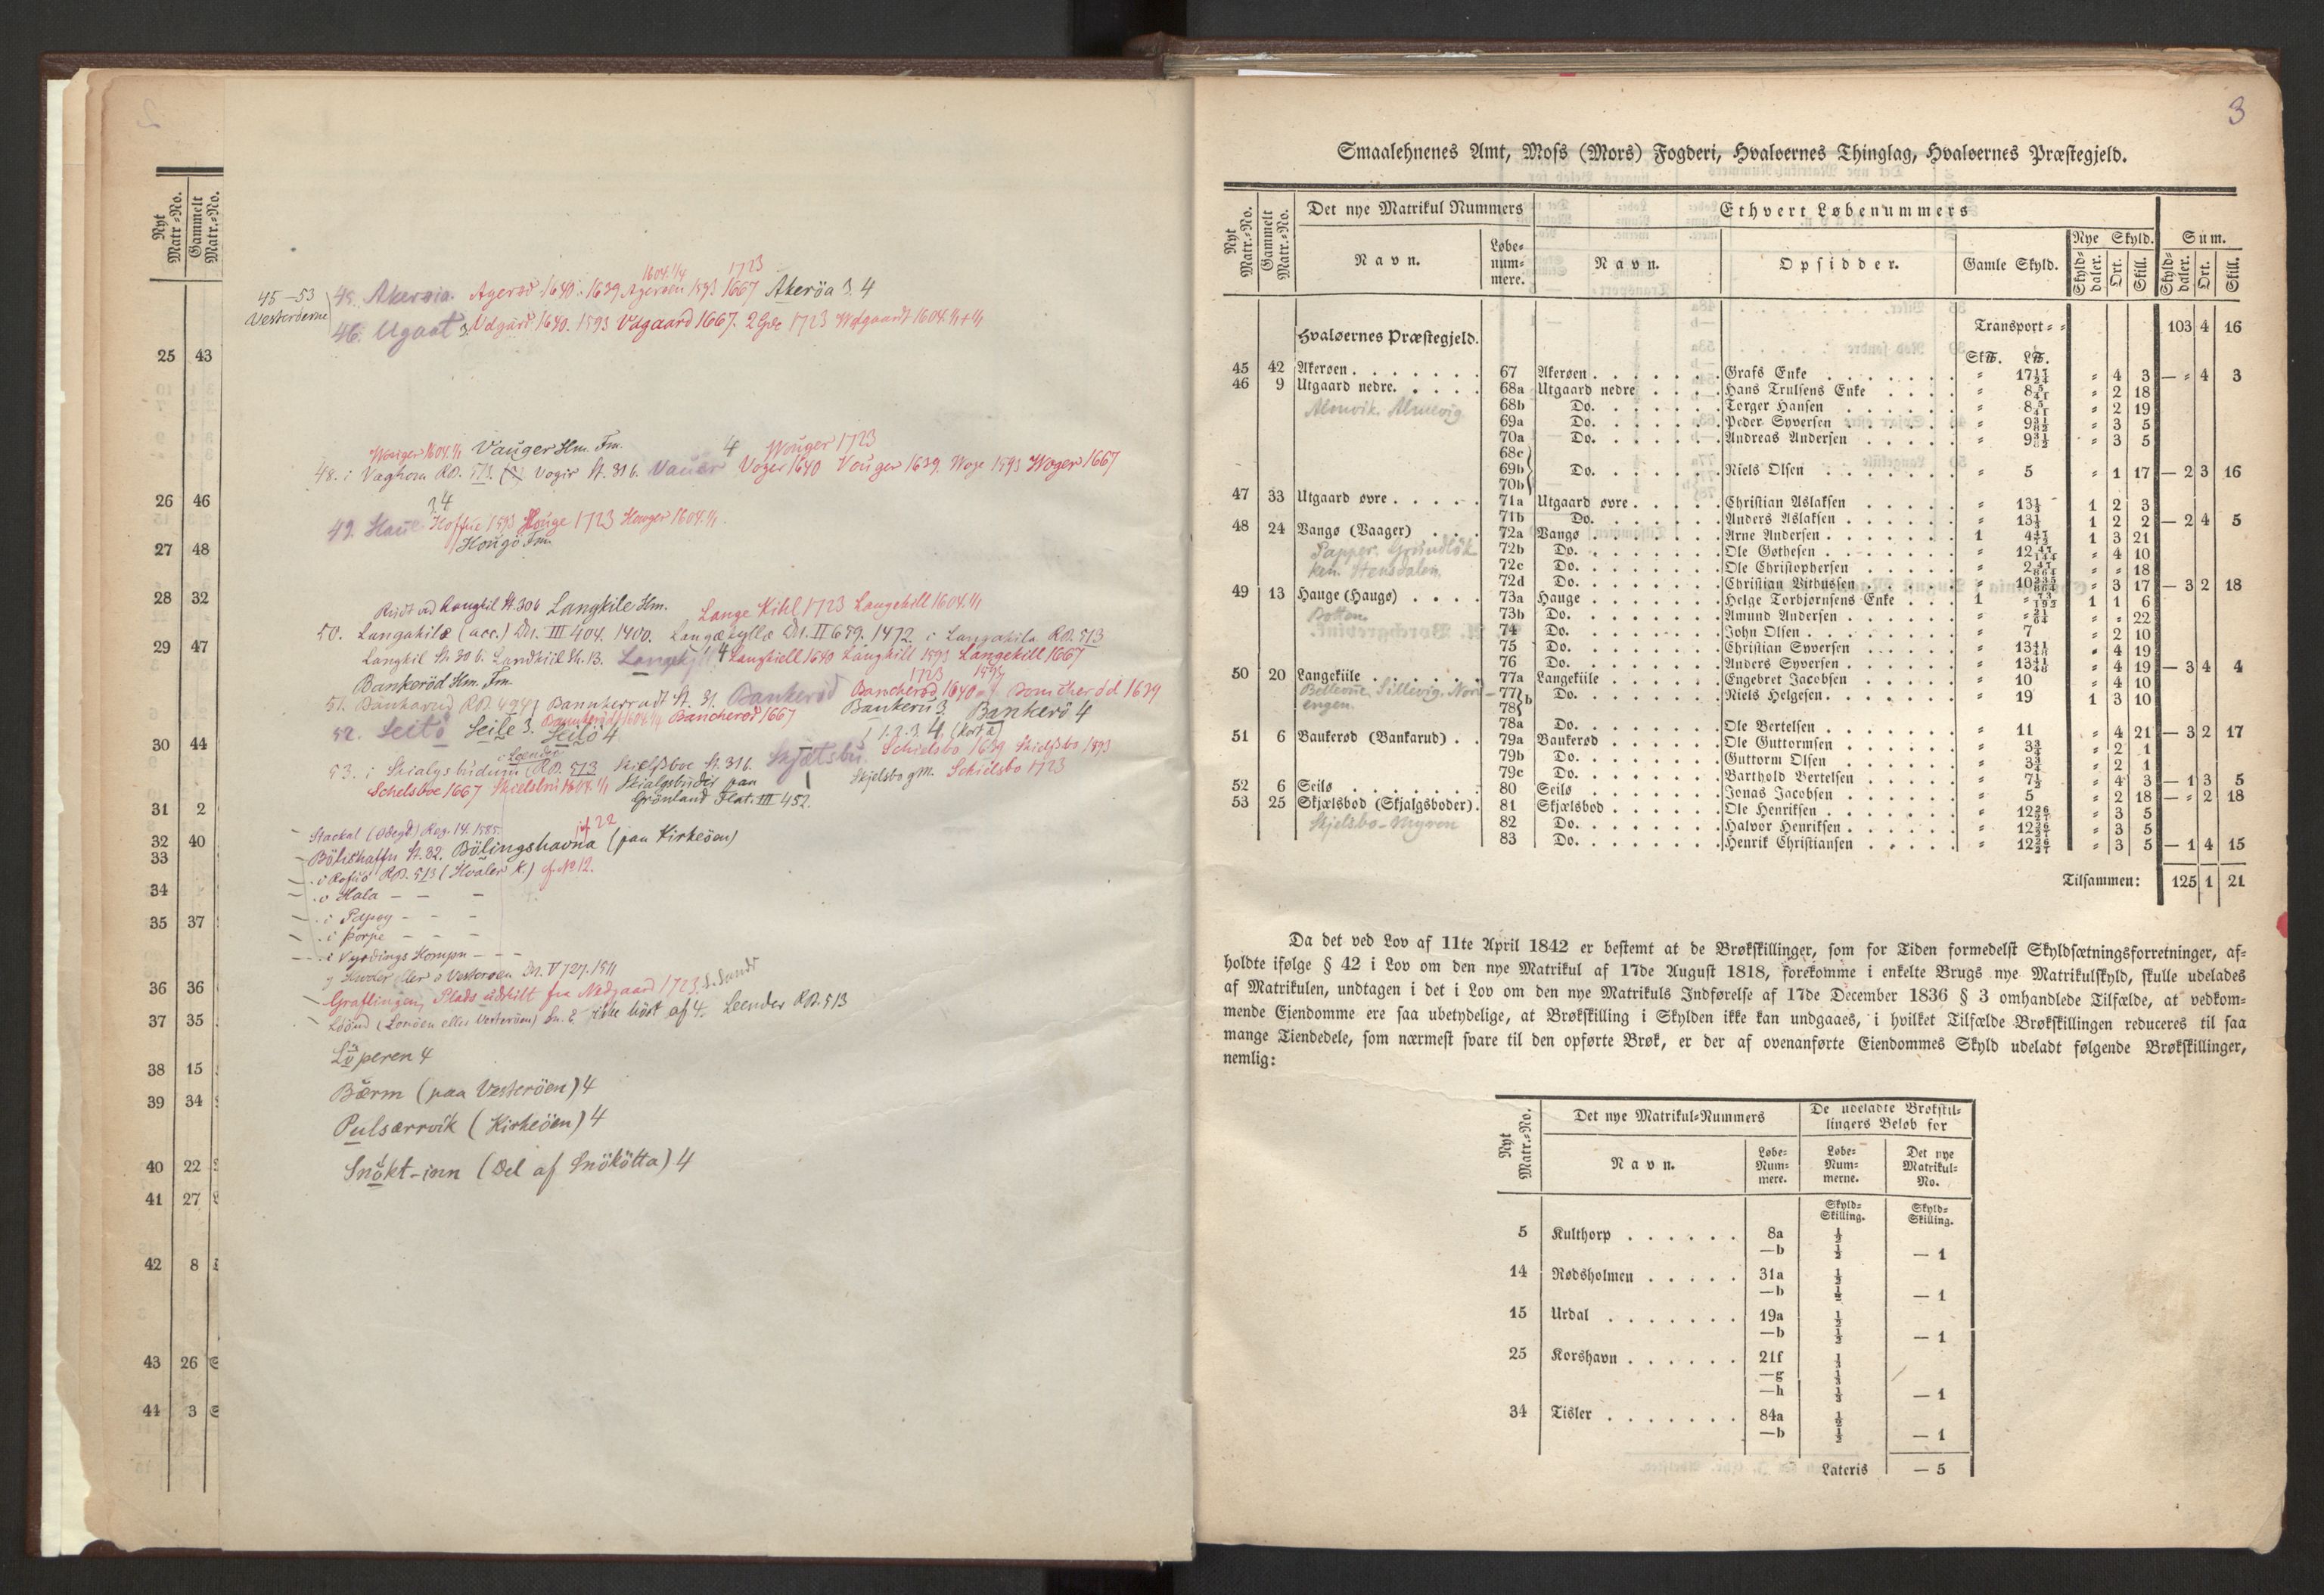 Nyt Matr.-No. Gammelt Matr.-No.
25 43
26 46
27 48
28 32
29 47
30 44
31 2
32 40
33
34
35 37
36 36
37 35
38 15
39 34
40 22
41 27
42 8
43 26
44 3
1604.1/1 1723
45-53 45. Akerøia. Agerød 1640. 1639 Agerøen 1593 1667 Akeröa 3. 4
Vesterøerne 46. Ugaat 3. Udgård 1640. 1593 Udgaard 1667. 2 Gde 1723 Wdgaardt 1604.1/1+1/1
Woiger 1604.1/1 Vauger Hm. Fm. 4 Wouger 1723
48. i Vaghom RB. 513. Vogir St. 31 b. Vauer Voger 1640 Vouger 1639. Woge 1593 Woger 1667
3.4
49. Haue Hoffue 1593 Houge 1723 Houger 1604.1/1.
Hougö Fm.
Langkil St. 30 b Langkile Hm. Lange Kihl 1723 Langekill 1604.1/1
50. Langakilæ (acc.) Dn. III 404. 1400. Langækyllæ Dn. II 659. 1472. i Langakila RB. 513
Langkil St. 30 b. Landkiil St. 13. 4 Langkiell 1640 Langkill 1593 Langekill 1667
Bankeröd Hm. Fm. 1723 1593
51. Bankarud RB. 494; Bannkerradt St. 31. Bankerød Bancherød 1640 Boncherod 1639
Bancherød 1667 Bankerü 3. Bankerö 4
52. Seilö Seile 3. Seilö 4 1. 2. 3. 4. (kort a)
53. i Skialgsbudum RB. 513 Skielsboe St. 31 b. Skjælsbu. Schielsbo 1639 Skielsbo 1593
Schelsboe 1667 Skielsbu 1604.1/1 Skialgsbudir paa Skjelsbo gM. Schielsbo 1723
Grönland Flat. III 452.
Stackal (Ødegd) Reg. 14. 1585. jf 22
Bölishaffn St. 32. Bölingshavna (paa Kirkeöen)
i Rofsö RB. 513 (Hvaler K.) cf. No 12.
o Hala – – –
i Papøy – – –
i Þorpe – – –
i Vyrdings Kompn – – –
Dn. V 727. 1511
Graflingen, Plads udskilt fra Nedgaard 1723. S. Sandø
Löönd (Lonöen eller Vesteröen) ikke hört af 4. Leender RB. 513
Löperen 4
Bærm (paa Vesteröen) 4
Pulsærrvik (Kirkeöen) 4
Snökt-inn (Del af Snökötta) 4
3
Smaalehnenes Amt, Moss (Mors) Fogderi, Hvaløernes Thinglag, Hvaløernes Præstegjeld.
Nyt Matr.-No. Gammelt Matr.-No. Det nye Matrikul Nummers Ethvert Løbenummers
Navn. Løbe-nummere. Navn. Opsidder. Gamle Skyld. Nye Skyld. Sum.
Skyld-daler. Ort. Skill. Skyld-daler. Ort. Skill.
Hvaløernes Præstegjeld. Transport = = 103 4 16
Sk℔. L℔.
45 42 Akerøen 67 Akerøen Grafs Enke " 17 17/24 " 4 3 — " 4 3
46 9 Utgaard nedre 68a Utgaard nedre Hans Trulsens Enke " 8 5/41 " 2 18
Almvik. Almevig 68b Do. Torger Hansen " 8 5/41 " 2 19
69a Do. Peder Syversen " 9 31/82 " 3 5
70a Do. Andreas Andersen " 9 31/82 " 3 5
68c
69b Do. Niels Olsen " 5 " 1 17 — 2 3 16
70b
47 33 Utgaard øvre 71a Utgaard øvre Christian Aslaksen " 13 1/2 1 2 3
71b Do. Anders Aslaksen " 13 1/2 1 2 2 — 2 4 5
48 24 Vangø (Vaager) 72a Vangø Arne Andersen 1 4 47/72 1 3 21
Papper. Grundlök 72b Do. Ole Gothesen " 12 47/144 " 4 10
ken. Stensdalen. 72c Do. Ole Christophersen " 2 47/864 " " 18
72d Do. Christian Vithussen " 10 235/864 " 3 17 — 3 2 18
49 13 Hauge (Haugø) 73a Hauge Helge Torbjørnsens Enke 1 " 73/192 1 1 6
Botten 73b Do. Amund Andersen " " 21/64 " " 22
74 Do. John Olsen " 7 " 2 10
75 Do. Christian Syversen " 13 41/48 " 4 19
76 Do. Anders Syversen " 13 41/48 " 4 19 — 3 4 4
50 20 Langekiile 77a Langekiile Engebret Jacobsen " 10 " 4 10
Bellevue. Sillevig. Nord- 77 b Do. Niels Helgesen " 19 1 3 10
engen. 78
78a Do. Ole Bertelsen " 11 " 4 21 — 3 2 17
51 6 Bankerød (Bankarud) 79a Bankerød Ole Guttormsen " 3 3/4 " 2 1
79b Do. Guttorm Olsen " 3 3/4 " 2 1
79c Do. Barthold Bertelsen " 7 1/2 " 4 3 — 1 3 5
52 6 Seilø 80 Seilø Jonas Jacobsen " 5 " 2 18 — " 2 18
53 25 Skjælsbod (Skjalgsboder) 81 Skjælsbod Ole Henriksen " 12 26/27 " 3 5
Skjelsbo-Myren 82 Do. Halvor Henriksen " 12 26/27 " 3 5
83 Do. Henrik Christiansen " 12 26/27 " 3 5 — 1 4 15
Tilsammen: 125 1 21
Da det ved Lov af 11te April 1842 er bestemt at de Brøkskillinger, som for Tiden formedelst Skyldsætningsforretninger, af-
holdte ifølge § 42 i Lov om den nye Matrikul af 17de August 1818, forekomme i enkelte Brugs nye Matrikulskyld, skulle udelades
af Matrikulen, undtagen i det i Lov om den nye Matrikuls Indførelse af 17de December 1836 § 3 omhandlede Tilfælde, at vedkom-
mende Eiendomme ere saa ubetydelige, at Brøkskilling i Skylden ikke kan undgaaes, i hvilket Tilfælde Brøkskillingen reduceres til saa
mange Tiendedele, som nærmest svare til den opførte Brøk, er der af ovenanførte Eiendommes Skyld udeladt følgende Brøkskillinger,
nemlig:
Nyt Matr.-No. Det nye Matrikul-Nummers De udeladte Brøkskil-
lingers Beløb for
Navn. Løbe-Num-mere. Løbe-Num-merne. Det nye Matrikul-No.
Skyld-Skilling. Skyld-Skilling.
5 Kulthorp 8a 1/2
—b 1/2 — 1
14 Rødsholmen 31a 1/2
—b 1/2 — 1
15 Urdal 19a 1/2
—b 1/2 — 1
25 Korshavn 21f 1/3
—g 1/3
—h 1/3 — 1
34 Tisler 84a 1/2
—b 1/2 — 1
Lateris — 5